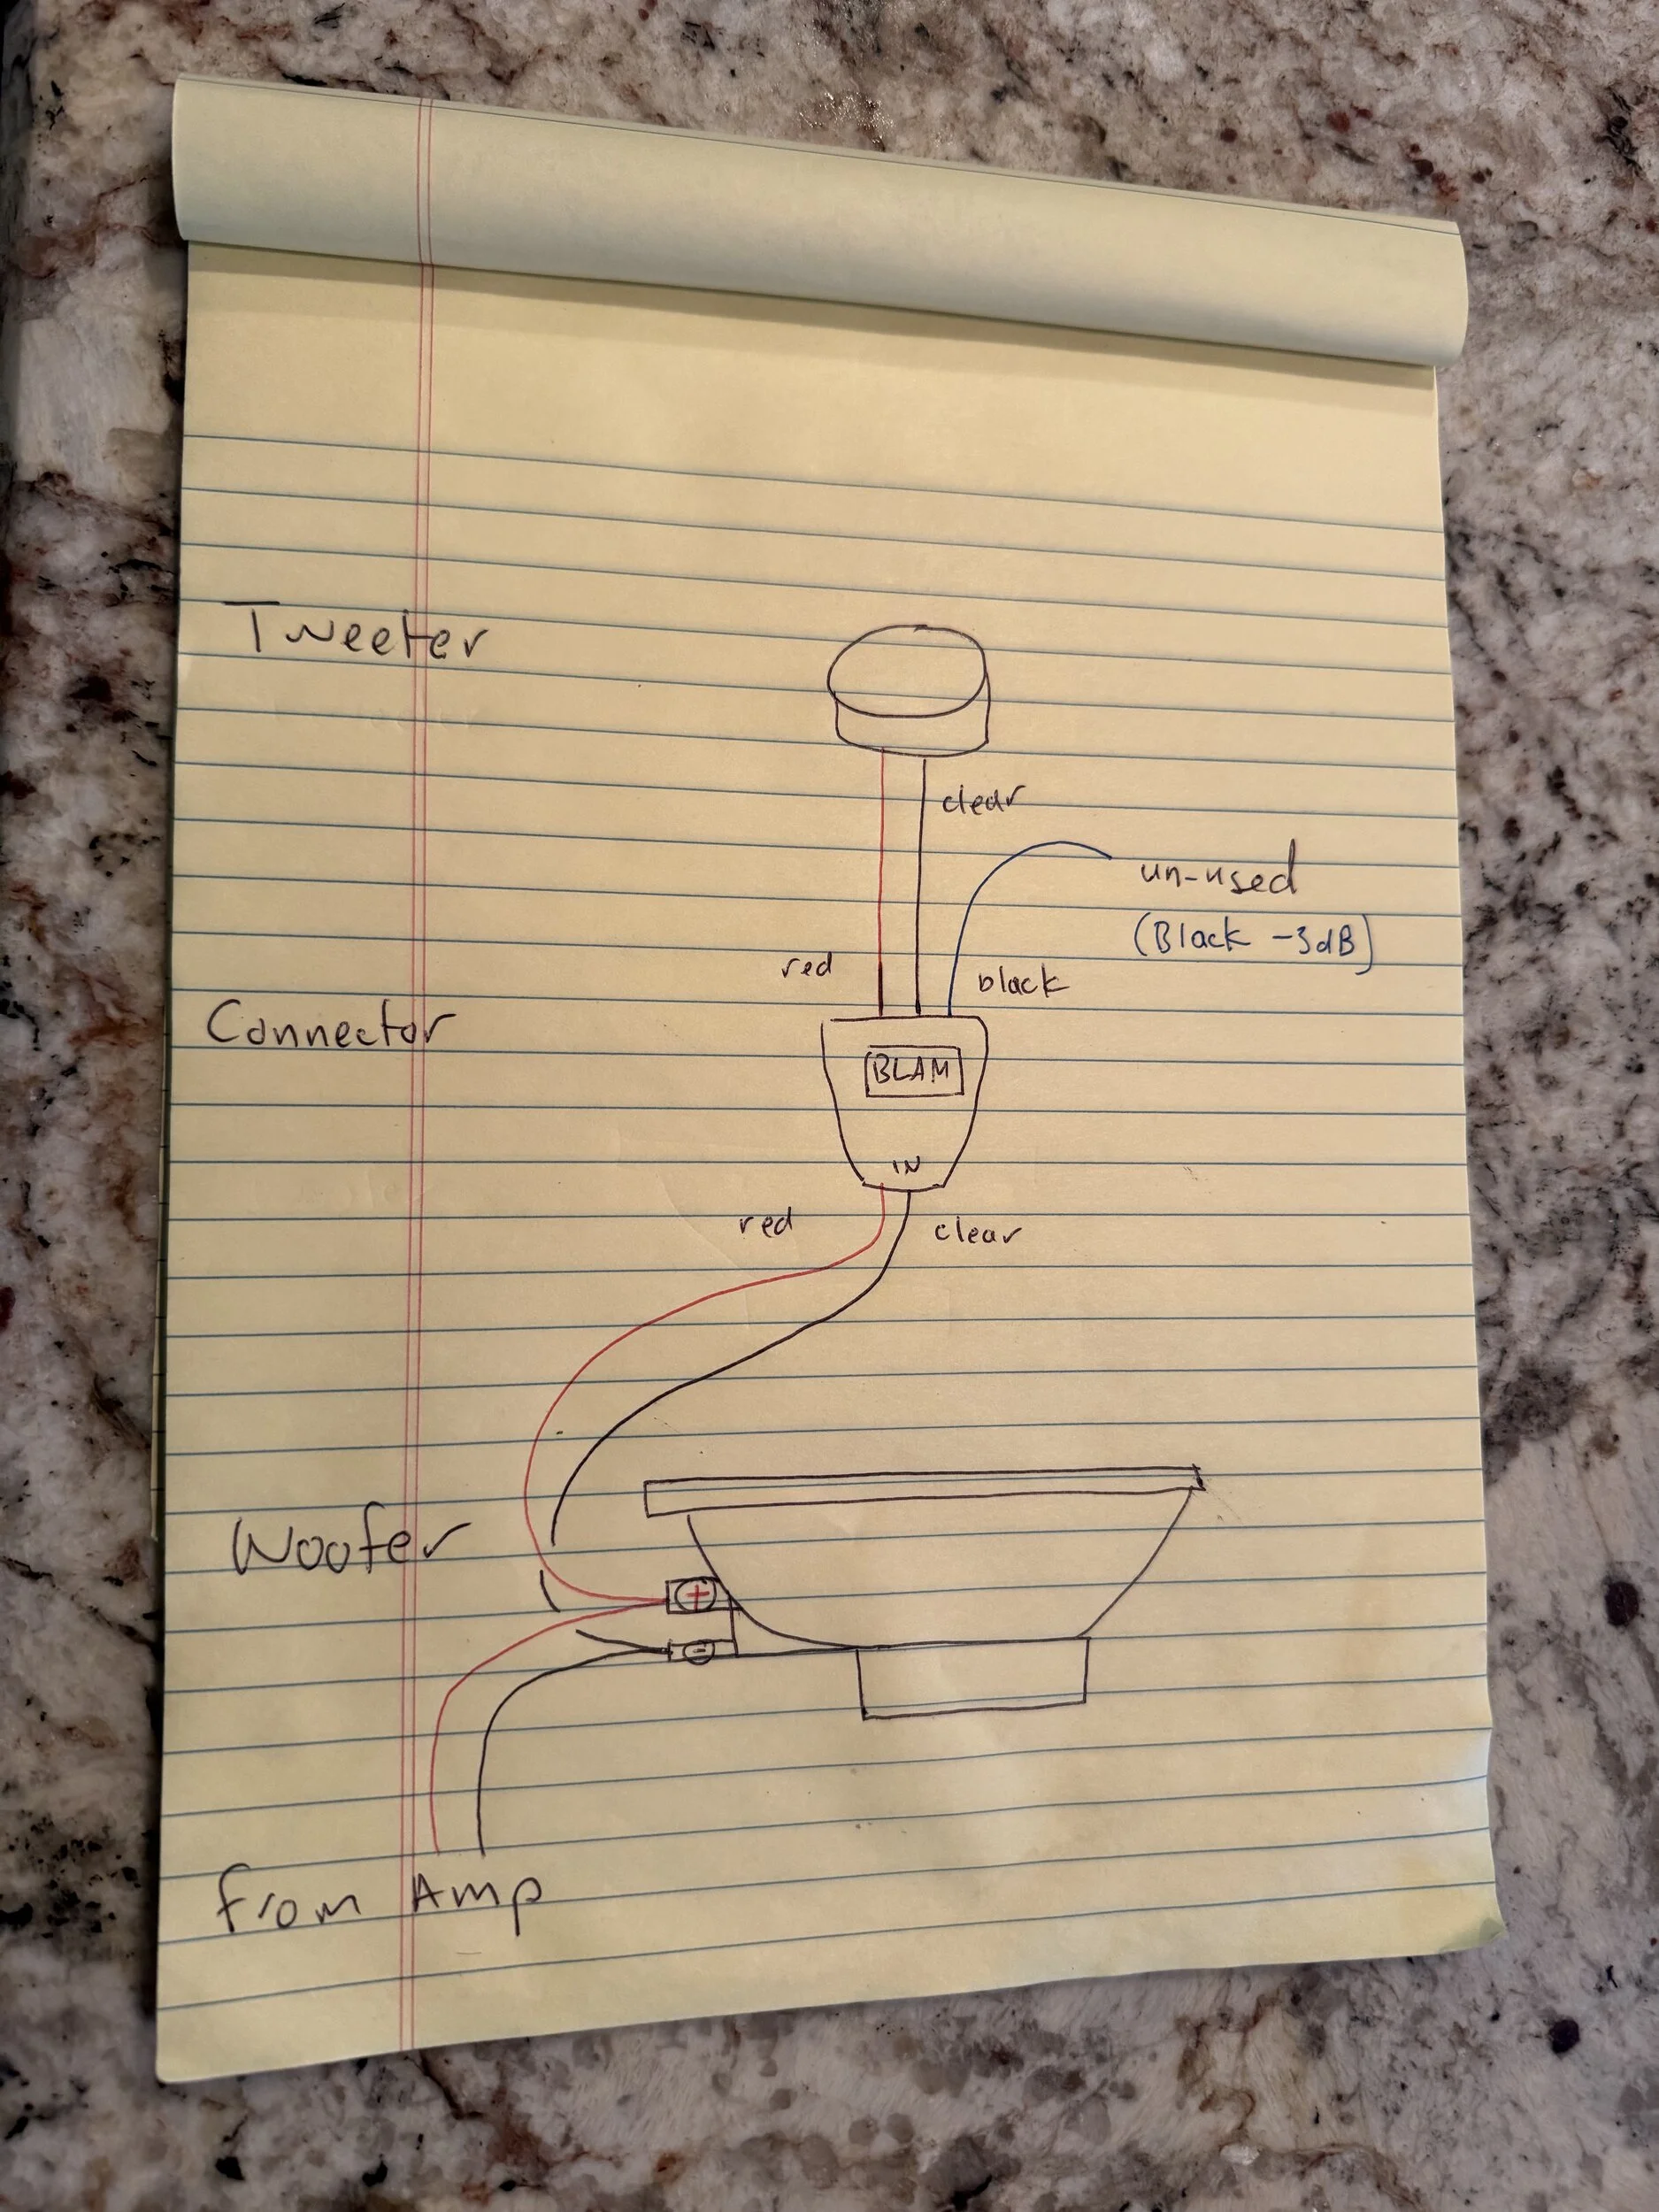 Tweeter
clear
un-used
(Black -3dB)
red
black
Connector
BLAM
IN
red
clear
Woofer
+
-
From Amp